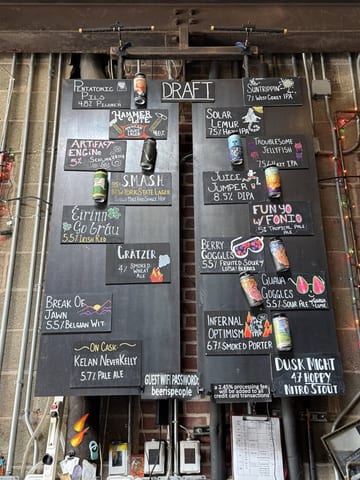 DRAFT
PENTATONIC
PILS
4.8% PILSNER
HAMMER
LITE
ARTIFACT
ENGINE
5%
SMASH
NEW YORK STATE LAGER
Eirinn
Go Brau
5.5% IRISH RED
GRATZER
4% SMOKED
WHEAT ALE
BREAK OF
JAWN
5.5% BELGIAN WIT
ON CASK:
KELAN NEVERKELLY
5.7% PALE ALE
SUNTRIPPIN
7% WEST COAST IPA
SOLAR
LEMUR
7.5% HAZY IPA
TROUBLESOME
JELLYFISH
JUICE
JUMPER
8.5% DIPA
FUN YO
W/FONIO
5.2 TROPICAL PALE
BERRY
GOGGLES
5.5% FRUITED SOUR
GUAVA
GOGGLES
5.5% SOUR ALE
INFERNAL
OPTIMISM
6.7% SMOKED PORTER
DUSK MIGHT
4.7 HOPPY
NITRO STOUT
GUEST WIFI PASSWORD:
beerispeople
a 2.45% processing fee
will be added to all
credit card transactions